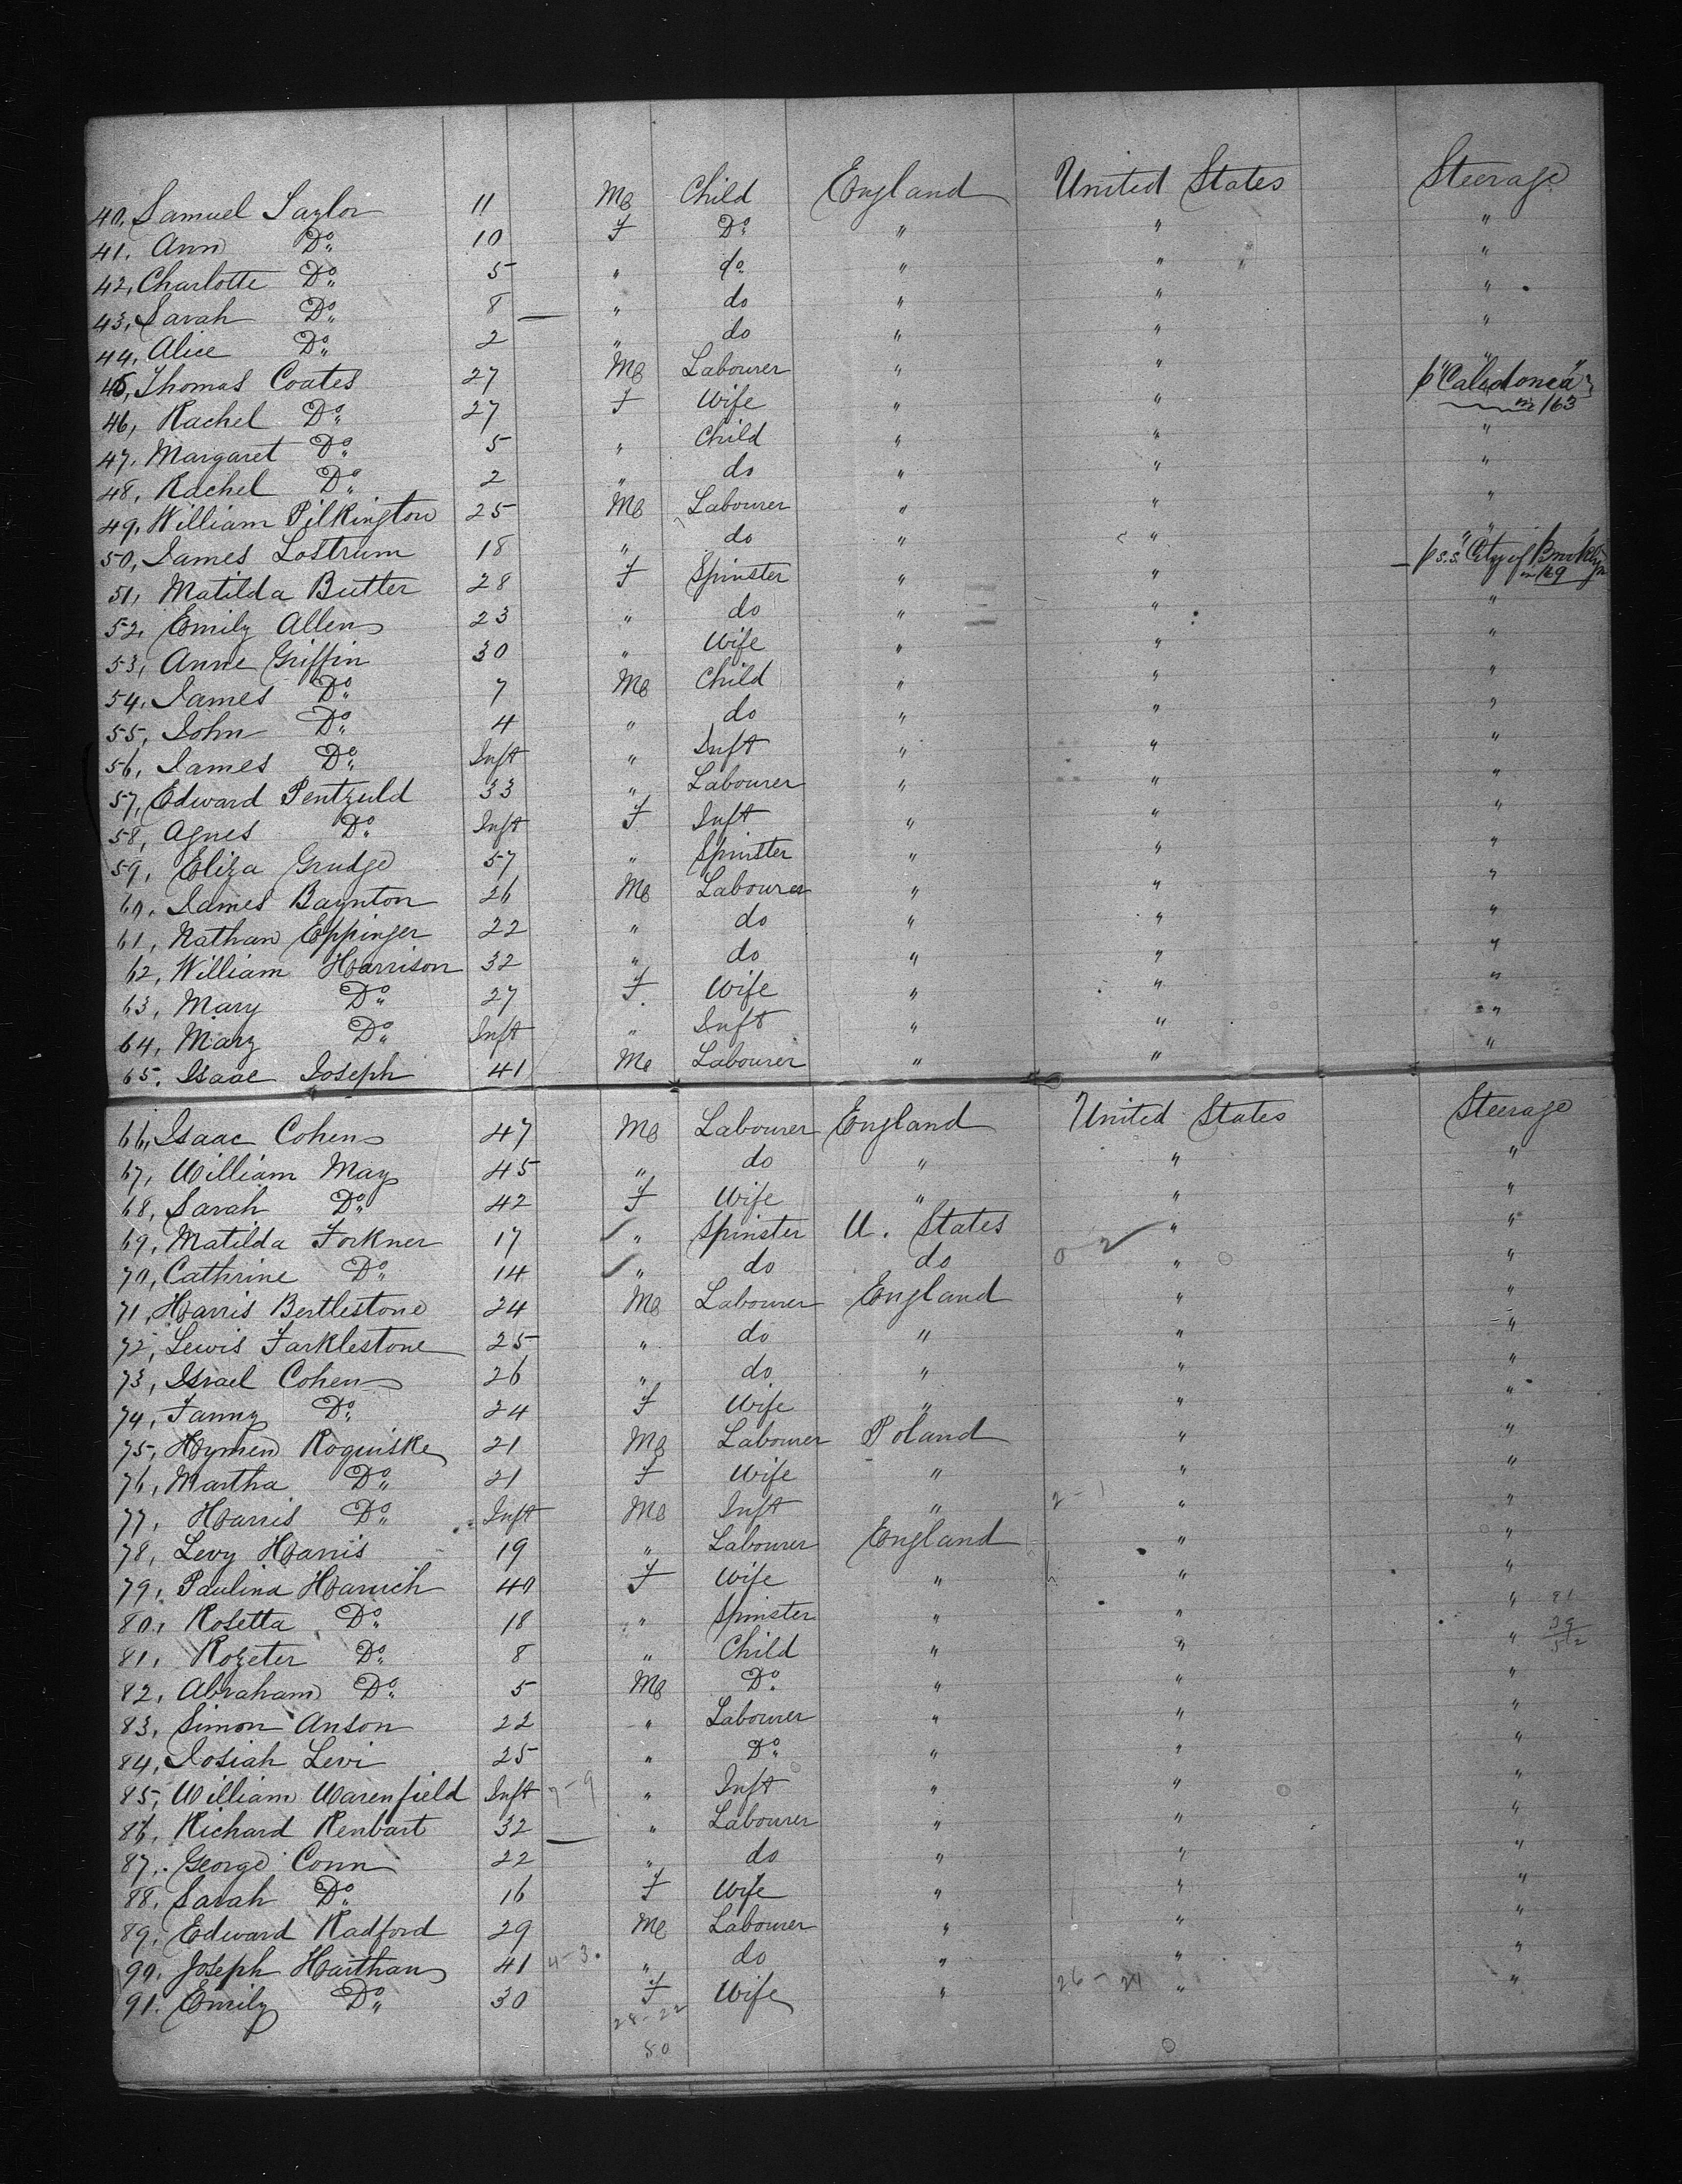 40, Samuel Taylor 11 M Child England United States Steerage
41, Ann Do 10 F Do " " "
42, Charlotte Do 5 " do " " "
43, Sarah Do 8 " do " " "
44, Alice Do 2 " do " " "
45, Thomas Coates 27 M Labourer " " " p "Caledonia" nr 163
46, Rachel Do 27 F Wife " "
47, Margaret Do 5 " Child " " "
48, Rachel Do 2 " do " " "
49, William Pilkington 25 M Labourer " " "
50, James Lostrum 18 " do " " " p s.s. "City of Brooklyn nr 169
51, Matilda Butler 28 F Spinster " "
52, Emily Allen 23 " do " " "
53, Anne Griffin 30 " Wife " " "
54, James Do 7 M Child " " "
55, John Do 4 " do " " "
56, James Do Inft " Inft " " "
57, Edward Pentzuld 33 " Labourer " " "
58, Agnes Do Inft F Inft " " "
59, Eliza Grudge 57 " Spinster " " "
60, James Baynton 26 M Labourer " " "
61, Nathan Eppinger 22 " do " " "
62, William Harrison 32 " do " " "
63, Mary Do 27 F Wife " " "
64, Mary Do Inft " Inft " " "
65, Isaac Joseph 41 M Labourer " " "
66, Isaac Cohen 47 M Labourer England United States Steerage
67, William May 45 " do " " "
68, Sarah Do 42 F Wife " " "
69, Matilda Forkner 17 " Spinster U. States " "
70, Cathrine Do 14 " do do 0 2 " "
71, Harris Bertlestone 24 M Labourer England " "
72, Lewis Farklestone 25 " do " " "
73, Israel Cohen 26 " do " " "
74, Fanny Do 24 F Wife " " "
75, Hymen Roquiske 21 M Labourer Poland " "
76, Martha Do 21 F Wife " " "
77, Harris Do Inft M Inft " 2-1 " "
78, Levy Harris 19 " Labourer England " "
79, Paulina Harrich 40 F Wife " " "
80, Rosetta Do 18 " Spinster " " " 91
81, Rozeter Do 8 " Child " " " 39 52
82, Abraham Do 5 M Do " " "
83, Simon Anson 22 " Labourer " " "
84, Josiah Levi 25 " Do " " "
85, William Warenfield Inft 7-9 " Inft " " "
86, Richard Renbart 32 " Labourer " " "
87, George Conn 22 " do " " "
88, Sarah Do 16 F Wife " " "
89, Edward Radford 29 M Labourer " " "
90, Joseph Harthan 41 4-3 " do " " "
91, Emily Do 30 F Wife " 26-24 " "
28-22
50